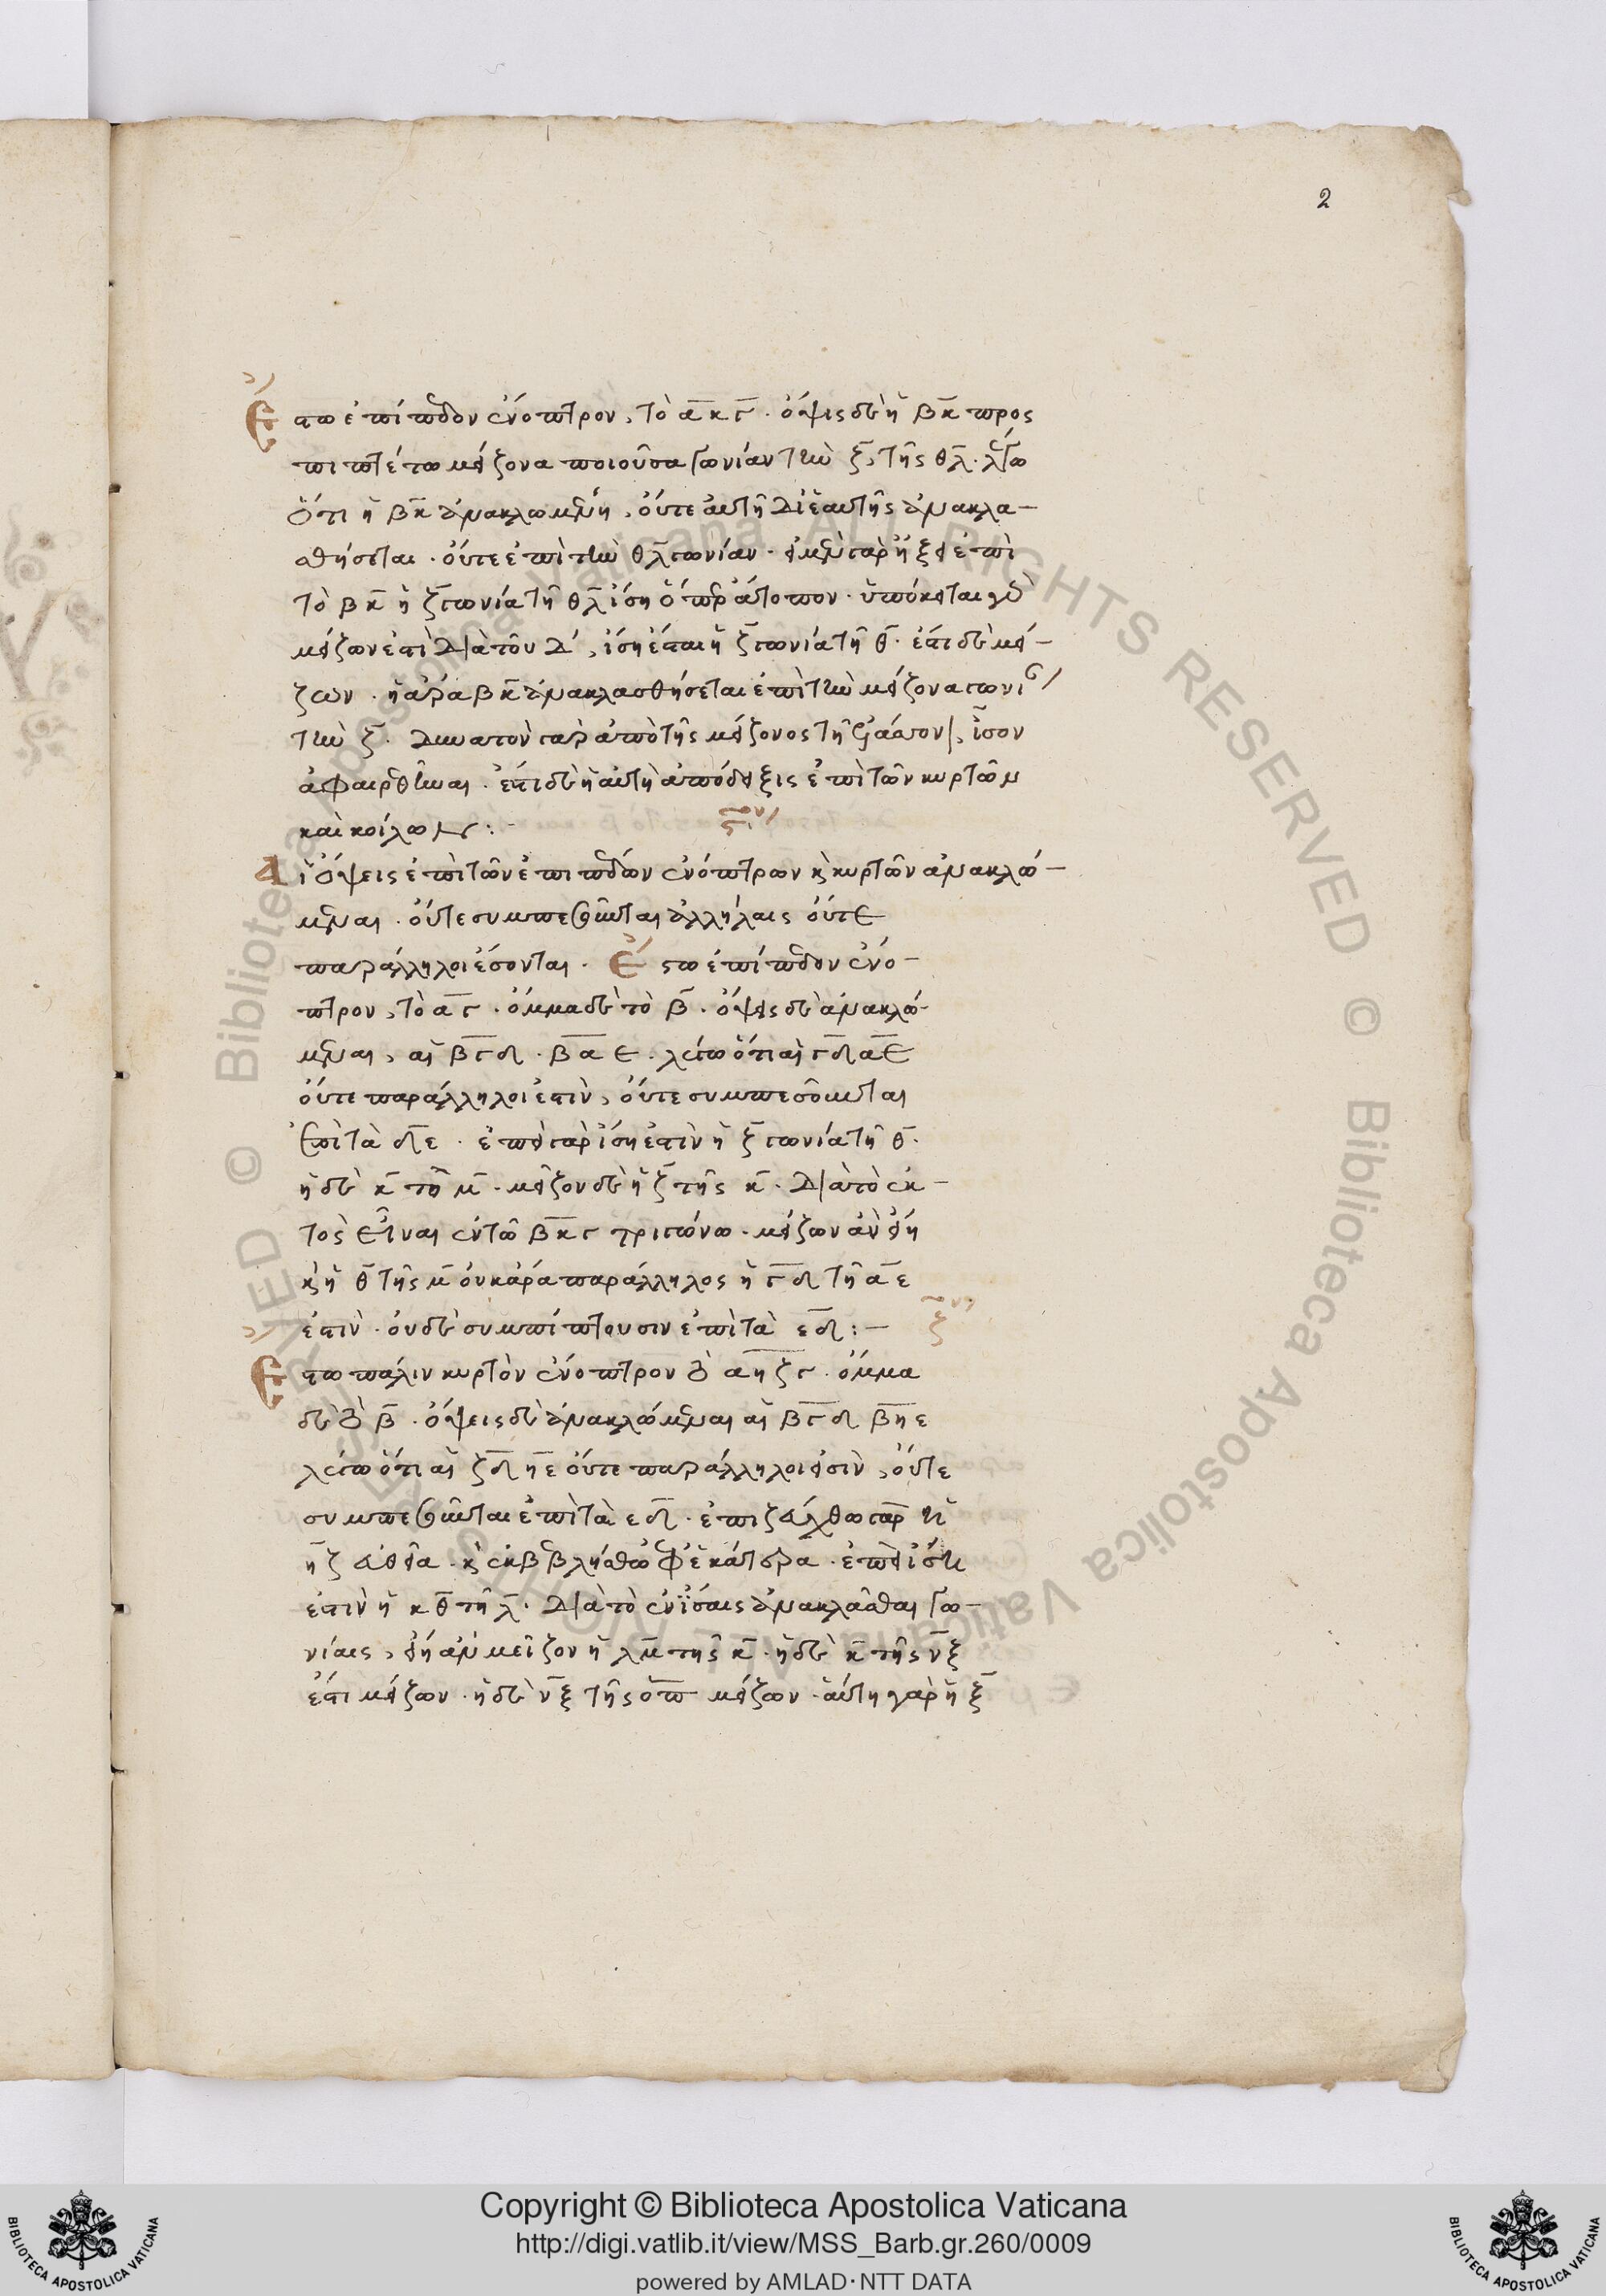 2
Ἔστω ἐπίπεδον ἔνοπτρον, τὸ α κ γ. ὄψις δὲ ἡ βκ προς
πιπτέτω μείζονα ποιοῦσα γωνίαν τὴν ζ, τῆς θλ. λέγω
ὅτι ἡ βκ ἀνακλωμένη, οὔτε αὐτὴ δι ἑαυτῆς ἀνακλα-
σθήσεται. οὔτε ἐπὶ τὴν θλ γωνίαν. εἰ μὲν γὰρ ἥξει ἐπὶ
τὸ βκ ἡ ζ γωνία τῆ θλ ἴση ὅπερ ἄτοπον. ὑπόκειται γὰρ
μείζων ἐστὶ διὰ τοῦ δ, ἴση ἔσται ἡ ζ γωνία τῆ θ. ἔστι δὲ μεί-
ζων. ἡ ἄρα βκ ἀνακλασθήσεται ἐπὶ τὴν μείζονα γωνι
τὴν ζ. δυνατὸν γὰρ ἀπὸ τῆς μείζονος τῆ ἐλάσσονι, ἴσον
ἀφαιρεθῆναι. ἔστι δὲ ἡ αὐτὴ ἀπόδειξις ἐπὶ τῶν κυρτῶν
καὶ κοίλων:-
Αἱ ὄψεις ἐπὶ τῶν ἐπιπέδων ἐνόπτρων κ κυρτῶν ἀνακλώ-
μεναι. οὔτε συμπεσοῦνται ἀλλήλαις οὔτε
παράλληλοι ἔσονται. Ἔστω ἐπίπεδον ἔνο-
πτρον, τὸ α γ. ὄμμα δὲ τὸ β. ὄψεις δὲ ἀνακλώ-
μεναι, αἱ βγδ. βα ε. λέγω ὅτι αἱ γδ αε
οὔτε παράλληλοι ἐστὶν, οὔτε συμπεσοῦνται
ἐπὶ τὰ δε. ἐπεὶ γὰρ ἴση ἐστὶν ἡ ζ γωνία τῆ θ.
ἡ δὲ κ τῆ μ. μείζον δὲ ἡ ζ τῆς κ. διὰ τὸ ἐκ-
τὸς εἶναι ἐν τῶ βκγ τριγώνω. μείζων ἂν εἴη
κ ἡ θ τῆς μ οὐκ ἄρα παράλληλος ἡ γδ τῆ αε
ἐστὶν. οὐδὲ συμπίπτουσιν ἐπὶ τὰ εδ:-
Ἔστω πάλιν κυρτὸν ἔνοπτρον τὸ αηζγ. ὄμμα
δὲ τὸ β. ὄψεις δὲ ἀνακλώμεναι αἱ βγδ βηε
λέγω ὅτι αἱ ζδ ηε οὔτε παράλληλοι εἰσὶν, οὔτε
συμπεσοῦνται ἐπὶ τὰ εδ. ἐπιζεύχθω γὰρ ἡ
ηζ εὐθεῖα. κ ἐκβεβλήσθω ἐφ ἑκάτερα. ἐπεὶ ἴση
ἐστὶν ἡ κθ τῆ λ. διὰ τὸ ἐν ἴσαις ἀνακλᾶσθαι γω-
νίαις, εἴη ἂν μεῖζον ἡ λμ τῆς κ. ἡ δὲ κ τῆς νξ
ἔστι μείζων. ἡ δὲ νξ τῆς οπ μείζων. αὕτη γὰρ ἡ ξ
Copyright © Biblioteca Apostolica Vaticana
http://digi.vatlib.it/view/MSS_Barb.gr.260/0009
powered by AMLAD·NTT DATA